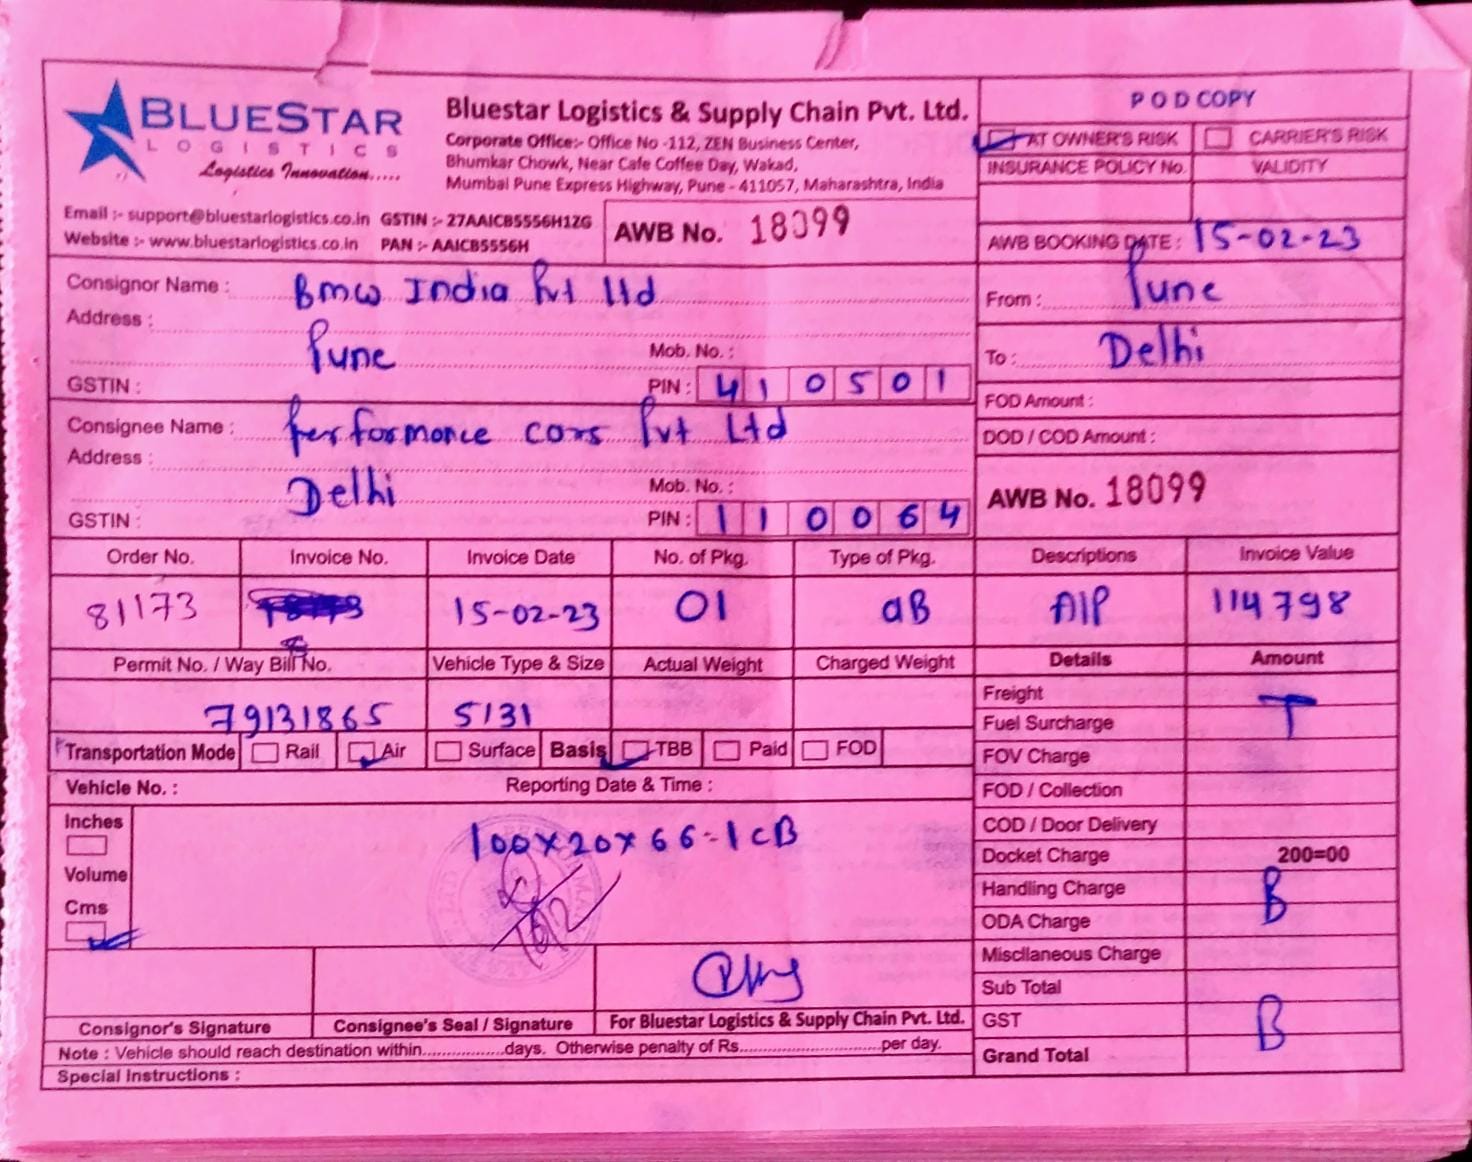 BLUESTAR
LOGISTICS
Logistics Innovation.....
Bluestar Logistics & Supply Chain Pvt. Ltd.
Corporate Office:- Office No -112, ZEN Business Center,
Bhumkar Chowk, Near Cafe Coffee Day, Wakad,
Mumbai Pune Express Highway, Pune - 411057, Maharashtra, India
Email :- support@bluestarlogistics.co.in GSTIN :- 27AAICB5556H1ZG
Website :- www.bluestarlogistics.co.in PAN :- AAICB5556H
AWB No. 18099
POD COPY
AT OWNER'S RISK CARRIER'S RISK
INSURANCE POLICY No. VALIDITY
AWB BOOKING DATE : 15-02-23
From : Pune
To : Delhi
FOD Amount :
DOD / COD Amount :
AWB No. 18099
Consignor Name : Bmw India Pvt ltd
Address :
Pune
Mob. No. :
GSTIN : PIN : 410501
Consignee Name : Performance cars Pvt Ltd
Address :
Delhi
Mob. No. :
GSTIN : PIN : 110064
Order No. Invoice No. Invoice Date No. of Pkg. Type of Pkg. Descriptions Invoice Value
81173 15-02-23 01 aB AIP 114798
Permit No. / Way Bill No. Vehicle Type & Size Actual Weight Charged Weight Details Amount
79131865 5131
Transportation Mode Rail Air Surface Basis TBB Paid FOD
Vehicle No. : Reporting Date & Time :
Inches
Volume
Cms
100x20x66-1cB
16/2
Freight
T
Fuel Surcharge
FOV Charge
FOD / Collection
COD / Door Delivery
Docket Charge 200=00
Handling Charge
B
ODA Charge
Miscllaneous Charge
Sub Total
GST
B
Grand Total
Consignor's Signature Consignee's Seal / Signature For Bluestar Logistics & Supply Chain Pvt. Ltd.
Note : Vehicle should reach destination within.................days. Otherwise penalty of Rs..............................per day.
Special Instructions :